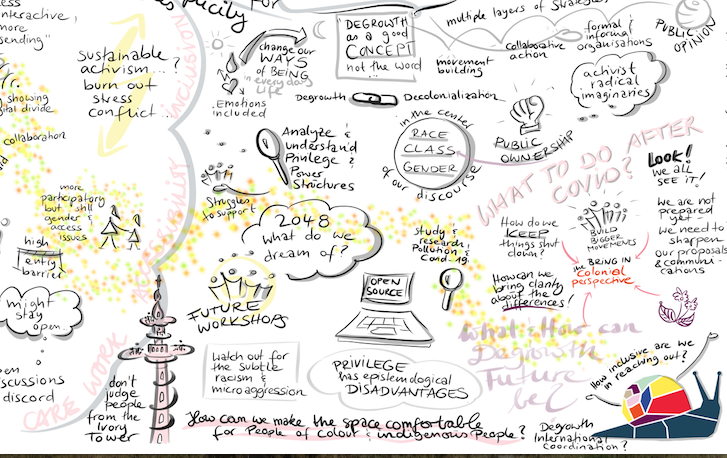 nteractive,
more
ending"
Sustainable
activism...?
burn out
stress
conflict...
showing
ital divide
collaboration
more
participatory
but still
gender &
access
issues
high
entry
barrier
might
stay
open...
scussions
discord
CARE WORK
ACCESSIBILITY
INCLUSION
don't
judge
people
from the
Ivory
Tower
change our
WAYS
of BEING
in everyday
LIFE
Emotions
included
DEGROWTH
as a good
CONCEPT
not the word
...
Degrowth
Decolonialization
multiple layers of Strategies
movement
building
collaborative
action
formal &
informal
organisations
PUBLIC
OPINION
activist
radical
imaginaries
Analyze &
understand
Privilege &
Power
Structures
in the center
RACE
CLASS
GENDER
of our discourse
PUBLIC
OWNERSHIP
WHAT TO DO AFTER
COVID?
LOOK!
We all
SEE IT!
Struggles
to support
2048
what do we
dream of?
FUTURE
WORKSHOPS
study &
research
Pollution &
Covid-19
OPEN
SOURCE
How do we
KEEP
things shut
down?
BUILD
BIGGER
MOVEMENTS
We are not
prepared
yet
we need to
sharpen
our proposals
& communi
cations
BRING IN
the Colonial
perspective
How can we
bring clarity
about the
differences!
What & How can
Degrowth
Future
be?
watch out for
the subtle
racism &
microaggression
PRIVILEGE
has epistemological
DISADVANTAGES
How inclusive are we
in reaching out?
How can we make the space comfortable
for People of Colour & indigenous People?
Degrowth
International
Coordination?